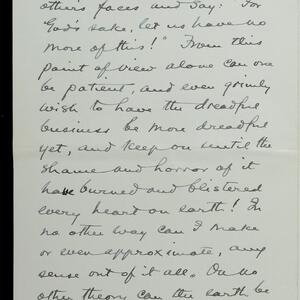 other's faces and say: "For
God's sake, let us have no
more of this!" From this
point of view alone can one
be patient, and even grimly
wish to have the dreadful
business be more dreadful
yet, and keep on until the
shame and horror of it
have burned and blistered
every heart on earth! In
no other way can I make
or even approximate, any
sense out of it all. On no
other theory can the earth be